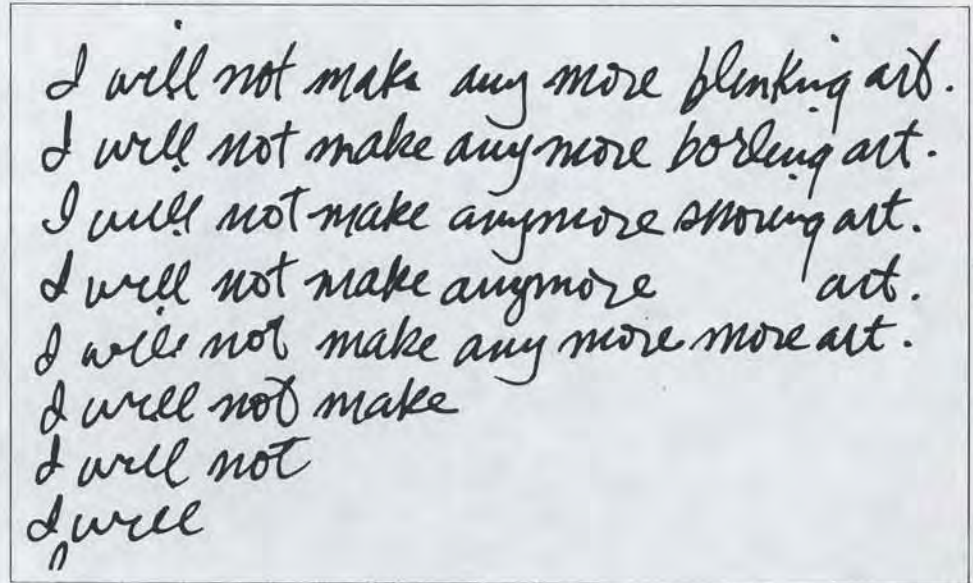 I will not make any more blinking art.
I will not make any more boring art.
I will not make anymore snoring art.
I will not make anymore art.
I will not make any more more art.
I will not make
I will not
I will